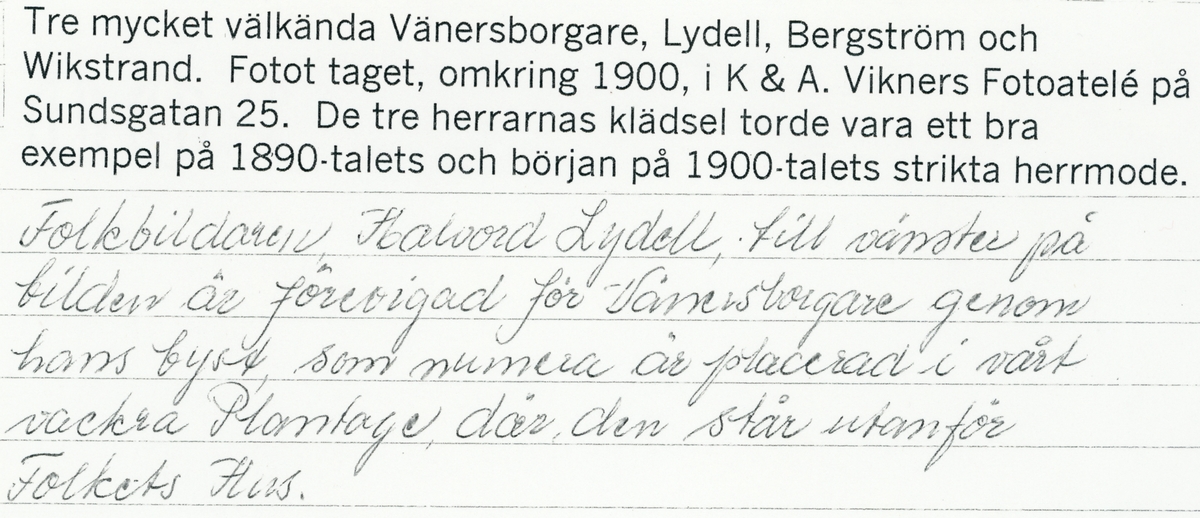 Tre mycket välkända Vänersborgare, Lydell, Bergström och
Wikstrand. Fotot taget, omkring 1900, i K & A. Vikners Fotoatelé på
Sundsgatan 25. De tre herrarnas klädsel torde vara ett bra
exempel på 1890-talets och början på 1900-talets strikta herrmode.
Folkbildaren, Halvord Lydell, till vänster på
bilden är förevigad för Vänersborgare genom
hans byst, som numera är placerad i vårt
vackra Plantage, där den står utanför
Folkets Hus.